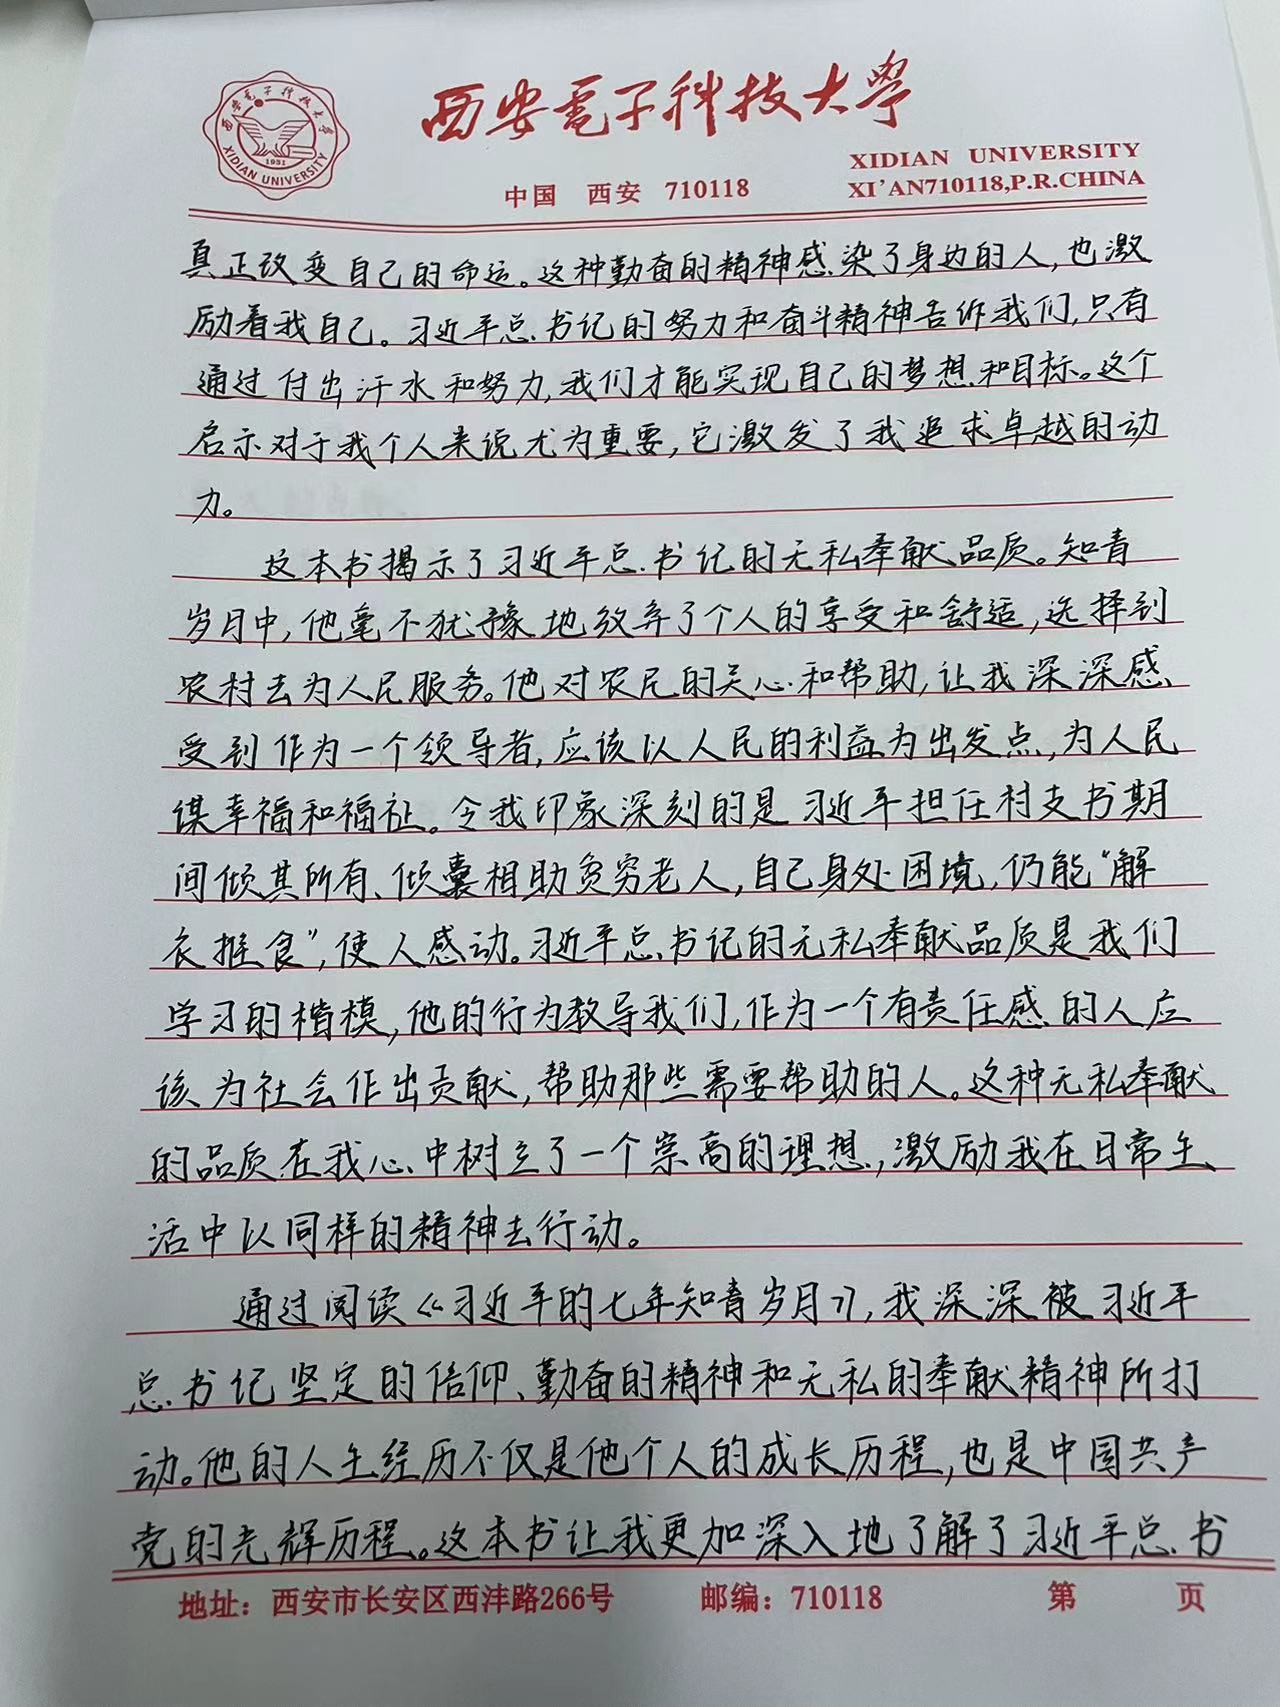 西安電子科技大學
西安電子科技大學
1931
XIDIAN UNIVERSITY
XIDIAN UNIVERSITY
中国 西安 710118
XI'AN710118,P.R.CHINA
真正改变自己的命运。这种勤奋的精神感染了身边的人,也激
励着我自己。习近平总书记的努力和奋斗精神告诉我们,只有
通过付出汗水和努力,我们才能实现自己的梦想和目标。这个
启示对于我个人来说尤为重要,它激发了我追求卓越的动
力。
这本书揭示了习近平总书记的无私奉献品质。知青
岁月中,他毫不犹豫地放弃了个人的享受和舒适,选择到
农村去为人民服务。他对农民的关心和帮助,让我深深感
受到作为一个领导者,应该以人民的利益为出发点,为人民
谋幸福和福祉。令我印象深刻的是习近平担任村支书期
间倾其所有、倾囊相助贫穷老人,自己身处困境,仍能“解
衣推食”,使人感动。习近平总书记的无私奉献品质是我们
学习的楷模,他的行为教导我们,作为一个有责任感的人应
该为社会作出贡献,帮助那些需要帮助的人。这种无私奉献
的品质在我心中树立了一个崇高的理想,激励我在日常生
活中以同样的精神去行动。
通过阅读《习近平的七年知青岁月》,我深深被习近平
总书记坚定的信仰、勤奋的精神和无私的奉献精神所打
动。他的人生经历不仅是他个人的成长历程,也是中国共产
党的光辉历程。这本书让我更加深入地了解了习近平总书
地址:西安市长安区西沣路266号 邮编:710118 第 页